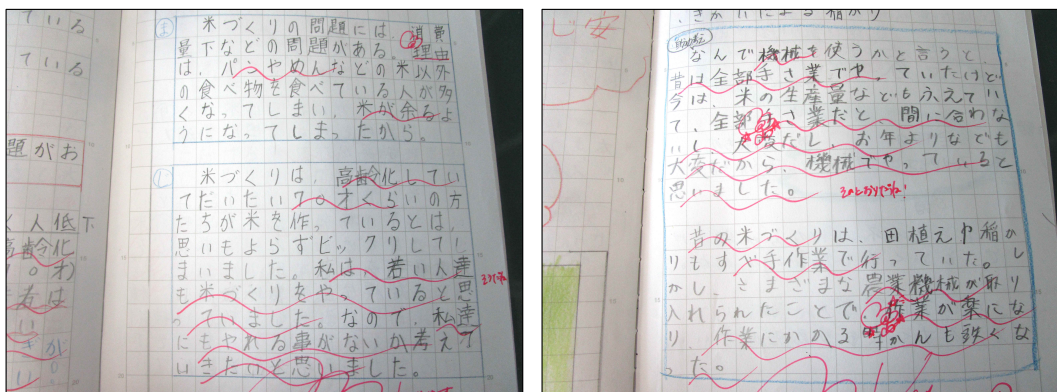 ている
ている
題がお
人低下
高齢化
70才)
者は
ま
米づくりの問題には、消費
量下などの問題がある。理由
は、パンやめんなどの米以外
の食べ物を食べている人が多
くなってしまい、米が余るよ
うになってしまったから。
し
米づくりは、高齢化してい
てだいたい70才くらいの方
たちが米を作っているとは、
思いもよらずビックリしてし
まいました。私は、若い人達
も米づくりをやっていると思
っていました。なので、私達
にもやれる事がないか考えて
いきたいと思いました。
きかいによる稲かり
安
なんで機械を使うかと言うと、
昔は全部手さ業でやっていたけど
今は、米の生産量などもふえてい
て、全部手さ業だと、間に合わな
いし、大変だし、お年よりなども
大変だから、機械でやっていると
思いました。
そのとおりですね!
昔の米づくりは、田植えや稲か
りもすべ手作業で行っていた。し
かし、さまざまな農業機械が取り
入れられたことで、作業が楽にな
り、作業にかかる時かんも短くな
った。